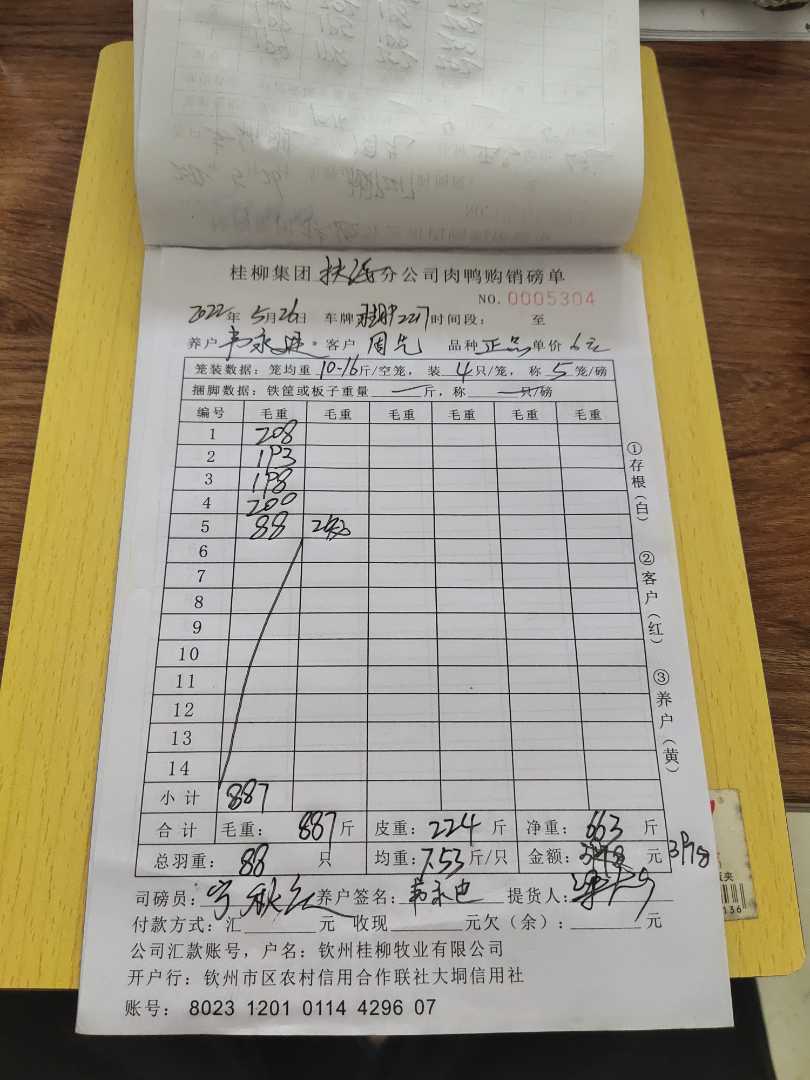 桂柳集团 扶绥 分公司肉鸭购销磅单
NO.0005304
2022年5月26日 车牌 2217 时间段: 至
养户 韦永 客户 周先 品种 正品 单价 6元
笼装数据: 笼均重 10-16 斤/空笼, 装 4 只/笼, 称 5 笼/磅
捆脚数据: 铁筐或板子重量 — 斤, 称 — 只/磅
编号 毛重 毛重 毛重 毛重 毛重 毛重
1 208
2 193
3 198
4 200
5 88
6
7
8
9
10
11
12
13
14
小计 887
合计 毛重: 887 斤 皮重: 224 斤 净重: 663 斤
总羽重: 88 只 均重: 7.53 斤/只 金额: 元 3978
司磅员: 养户签名: 韦永 提货人:
付款方式: 汇 元 收现 元欠(余): 元
公司汇款账号, 户名: 钦州桂柳牧业有限公司
开户行: 钦州市区农村信用合作联社大垌信用社
账号: 8023 1201 0114 4296 07
①存根(白)
②客户(红)
③养户(黄)
136